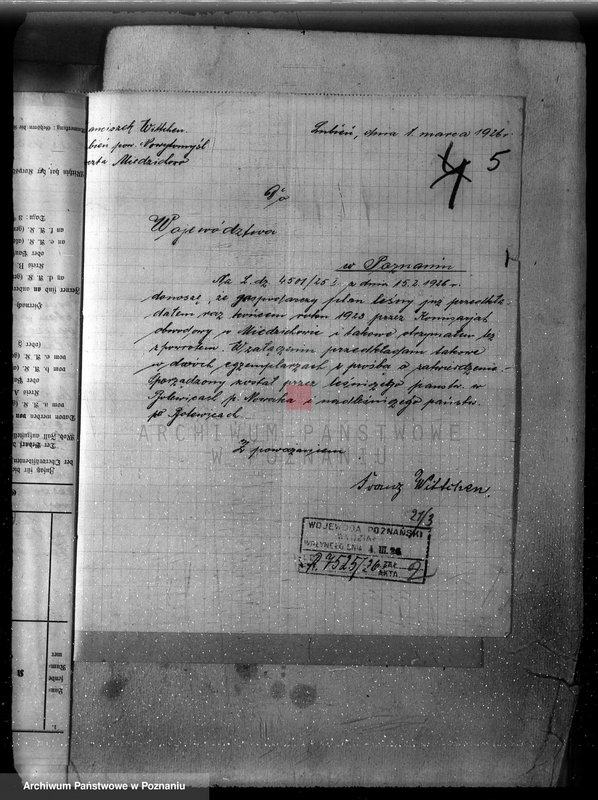 anciszek Wittchen.
bień pow. Nowytomyśl
czta Miedzichowo
Łubień, dnia 1. marca 1926 r.
4 5
Do
Województwa
w Poznaniu
Na L. dz. 4501/25 z dnia 15.2.1926 r.
donoszę, że gospodarczy plan leśny już przedkła-
dałem raz końcem roku 1923 przez Komisarjat
obwodowy w Miedzichowie i takowe otrzymałem też
zpowrotem. W załączeniu przedkładam takowe
w dwóch egzemplarzach z prośbą o zatwierdzenie.
Sporządzony został przez leśniczego państw. w
Bolewicach p. Nowaka i nadleśniczego państw.
Bolewicach.
Z poważaniem
Franz Wittchen.
21/3
WOJEWODA POZNAŃSKI
WYDZIAŁ
WPŁYNĘŁO DNIA 4. III. 26
7525/26 ZAŁ.
AKTA
ARCHIWUM PAŃSTWOWE
W POZNANIU
Archiwum Państwowe w Poznaniu